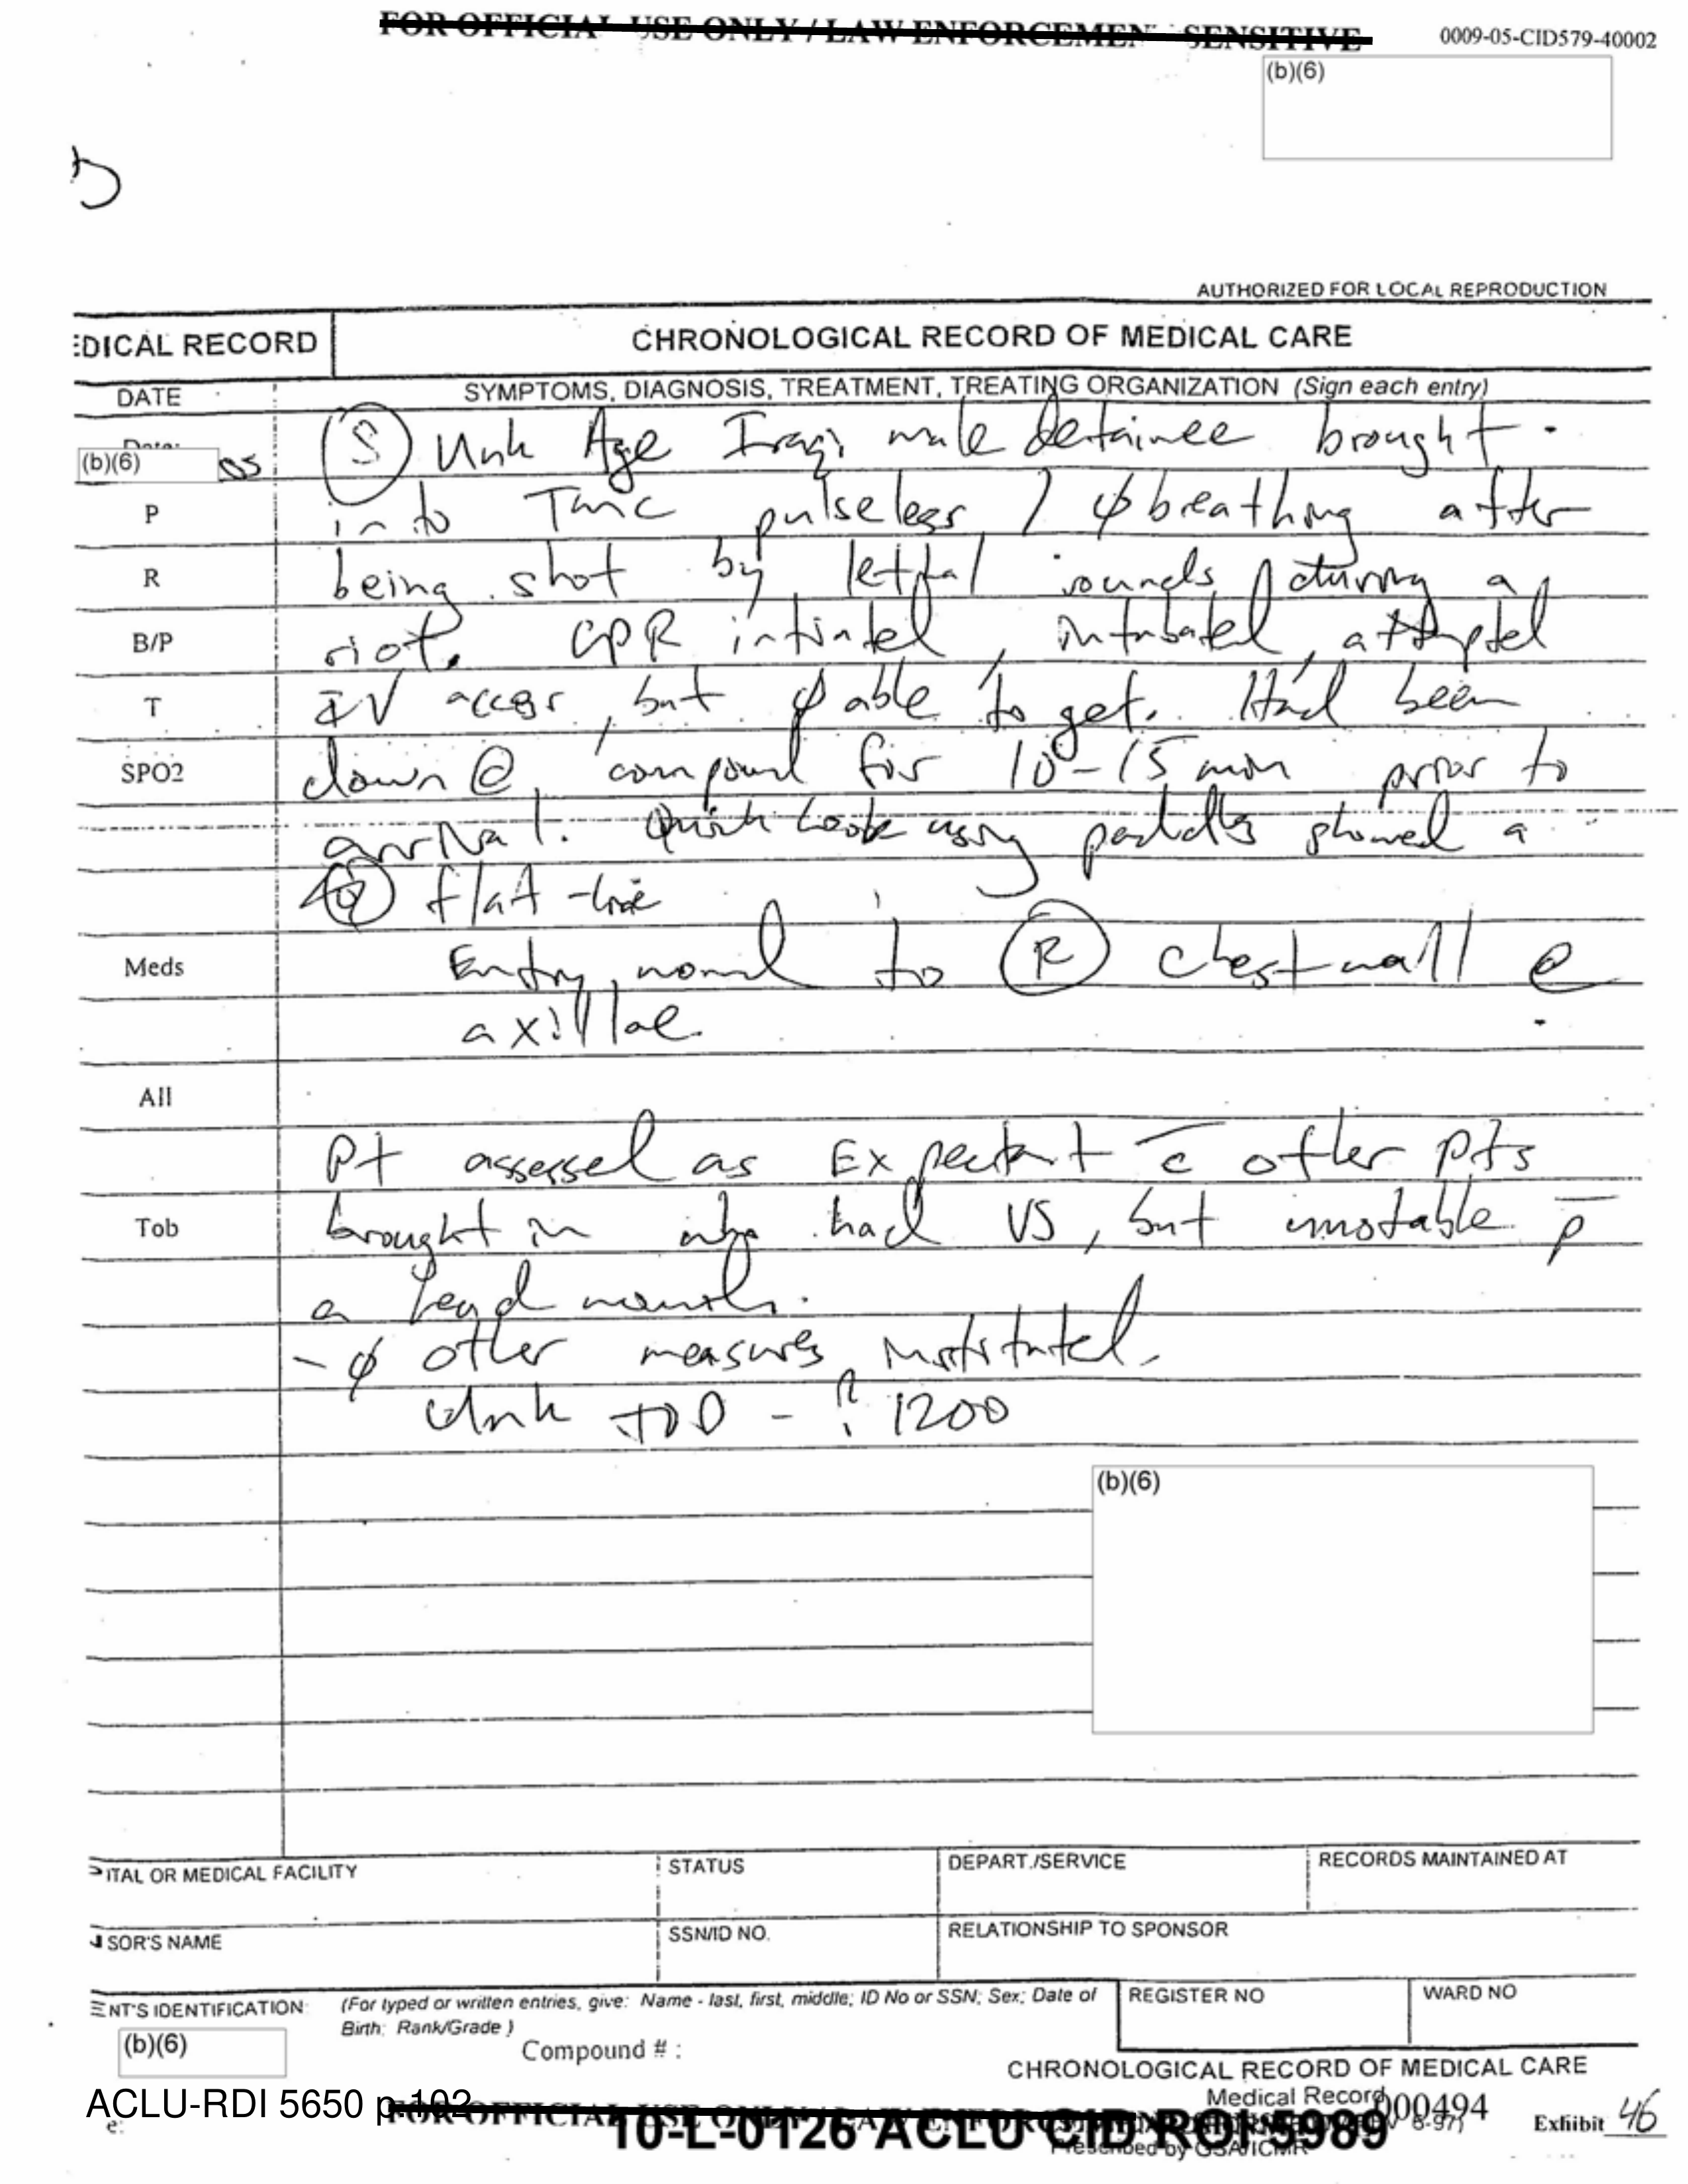 FOR OFFICIAL USE ONLY / LAW ENFORCEMENT SENSITIVE
0009-05-CID579-40002
(b)(6)
AUTHORIZED FOR LOCAL REPRODUCTION
EDICAL RECORD
CHRONOLOGICAL RECORD OF MEDICAL CARE
DATE
SYMPTOMS, DIAGNOSIS, TREATMENT, TREATING ORGANIZATION (Sign each entry)
Date:
(b)(6) 05
Ⓢ Unk Age Iraqi male detainee brought
P
into TMC pulseless / ϕ breathing after
R
being shot by lethal rounds during a
B/P
riot. CPR intiated, intubated, attempted
T
IV access, but ϕ able to get. Had been
SPO2
down @ compound for 10-15 min prior to
arrival. Quick Look using paddles showed a
flat-line
Meds
Entry wound to Ⓡ chest wall @
axillae
All
Pt assessed as Expectant c̄ other pts
Tob
brought in who had VS, but unstable p̄
a head wound.
- ϕ other measures instituted.
Unk TOD - ? 1200
(b)(6)
PITAL OR MEDICAL FACILITY
STATUS
DEPART./SERVICE
RECORDS MAINTAINED AT
SOR'S NAME
SSN/ID NO.
RELATIONSHIP TO SPONSOR
ENT'S IDENTIFICATION:
(For typed or written entries, give: Name - last, first, middle; ID No or SSN; Sex; Date of
Birth; Rank/Grade )
REGISTER NO
WARD NO
(b)(6)
Compound # :
CHRONOLOGICAL RECORD OF MEDICAL CARE
Medical Record
000494
Exhibit 46
ACLU-RDI 5650 p.102
FOR OFFICIAL USE ONLY
10-L-0126 ACLU CID ROI 5989
8-97)
Prescribed by GSA/ICMR
e: